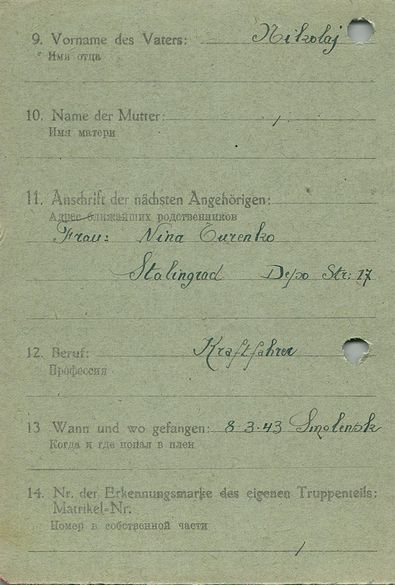 9. Vorname des Vaters: Nikolaj
Имя отца
10. Name der Mutter: /
Имя матери
11. Anschrift der nächsten Angehörigen:
Адрес ближайших родственников
Frau: Nina Curenko
Stalingrad Depo Str: 17
12. Beruf: Kraftfahrer
Профессия
13 Wann und wo gefangen: 8 3.43 Smolensk
Когда и где попал в плен
14. Nr. der Erkennungsmarke des eigenen Truppenteils:
Matrikel-Nr.
Номер в собственной части
/